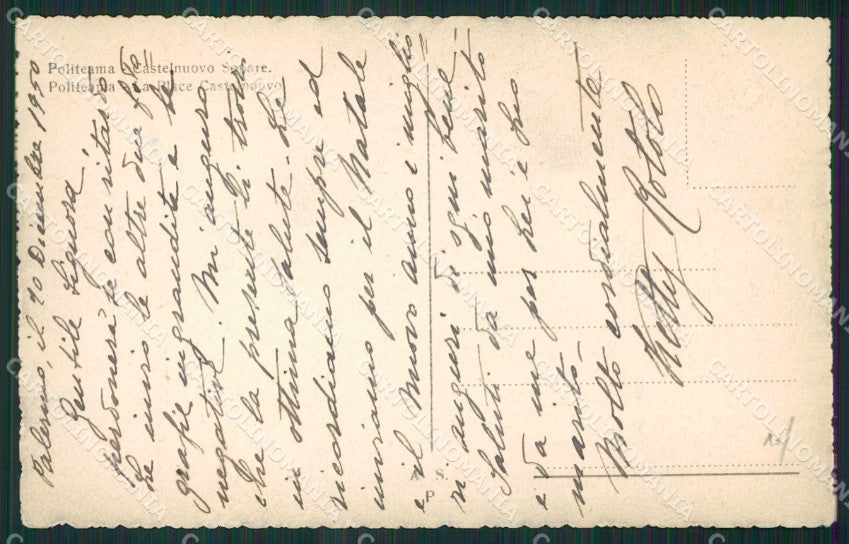 Politeama - Castelnuovo Square.
Politeama - La Place Castelnuovo
Palermo, il 10 Dicembre 1950
Gentile Signora,
perdonerà se con ritardo
Le invio le altre due foto=
grafie ingrandite e le
negative. Mi auguro
che la presente La trovi
in ottima salute. La
ricordiamo sempre ed
inviamo per il Natale
e il Nuovo anno i miglio=
ri auguri di ogni bene=
Saluti da mio marito
e da me per Lei e Suo
marito.
Molto cordialmente
Ketty Rotolo
A. S.
P.
CARTOLINOMANIA